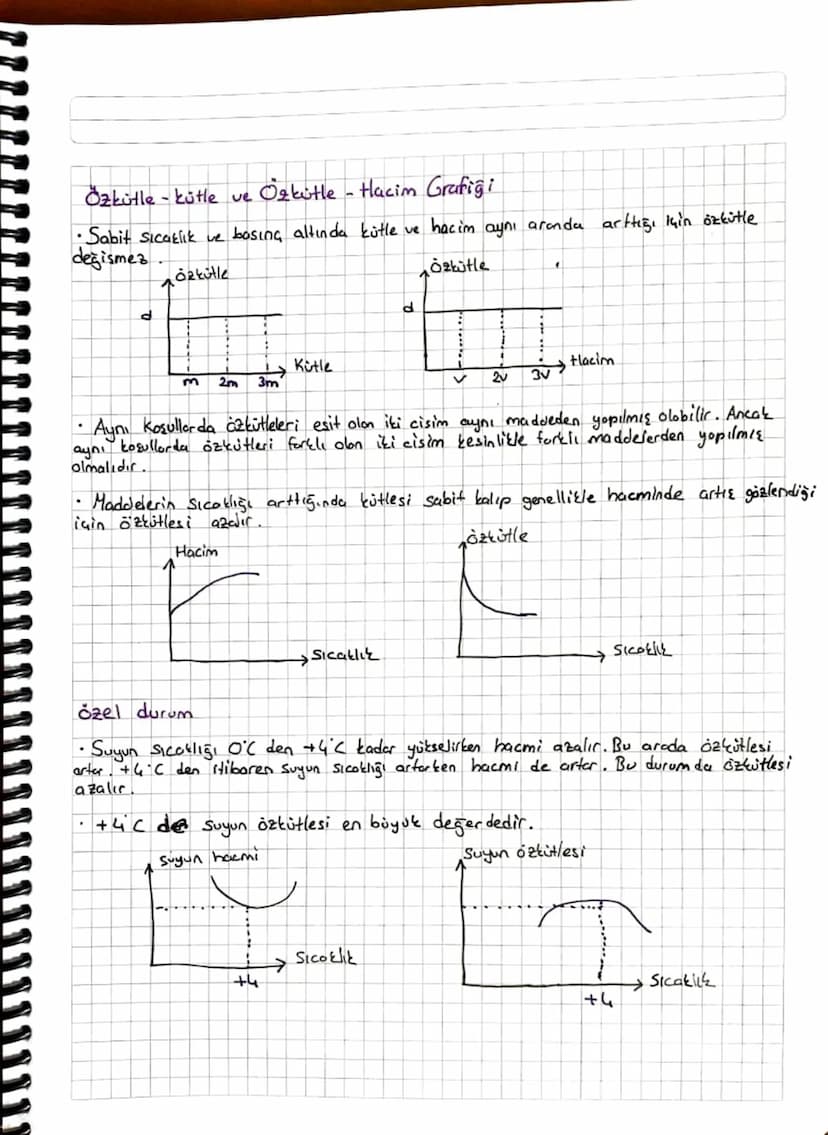 Özkütle - kütle ve Özkütle - Hacim Grafiği
· Sabit sıcaklık ve basınç altında kütle ve hacim aynı aranda arttığı için özkütle
değişmez.
özkütle
özkütle
d
d
Kütle
Hacim
m 2m 3m
v 2v 3v
· Aynı koşullarda özkütleleri eşit olan iki cisim aynı maddeden yapılmış olabilir. Ancak
aynı koşullarda özkütleri farklı olan iki cisim kesinlikle farklı maddelerden yapılmış
olmalıdır.
· Maddelerin sıcaklığı arttığında kütlesi sabit kalıp genellikle hacminde artış gözlendiği
için özkütlesi azalır.
Hacim
özkütle
Sıcaklık
Sıcaklık
özel durum
· Suyun sıcaklığı 0°C den +4°C kadar yükselirken hacmi azalır. Bu arada özkütlesi
artar. +4°C den itibaren suyun sıcaklığı artarken hacmi de artar. Bu durumda özkütlesi
azalır.
· +4°C de suyun özkütlesi en büyük değerdedir.
Suyun hacmi
Suyun özkütlesi
Sıcaklık
Sıcaklık
+4
+4